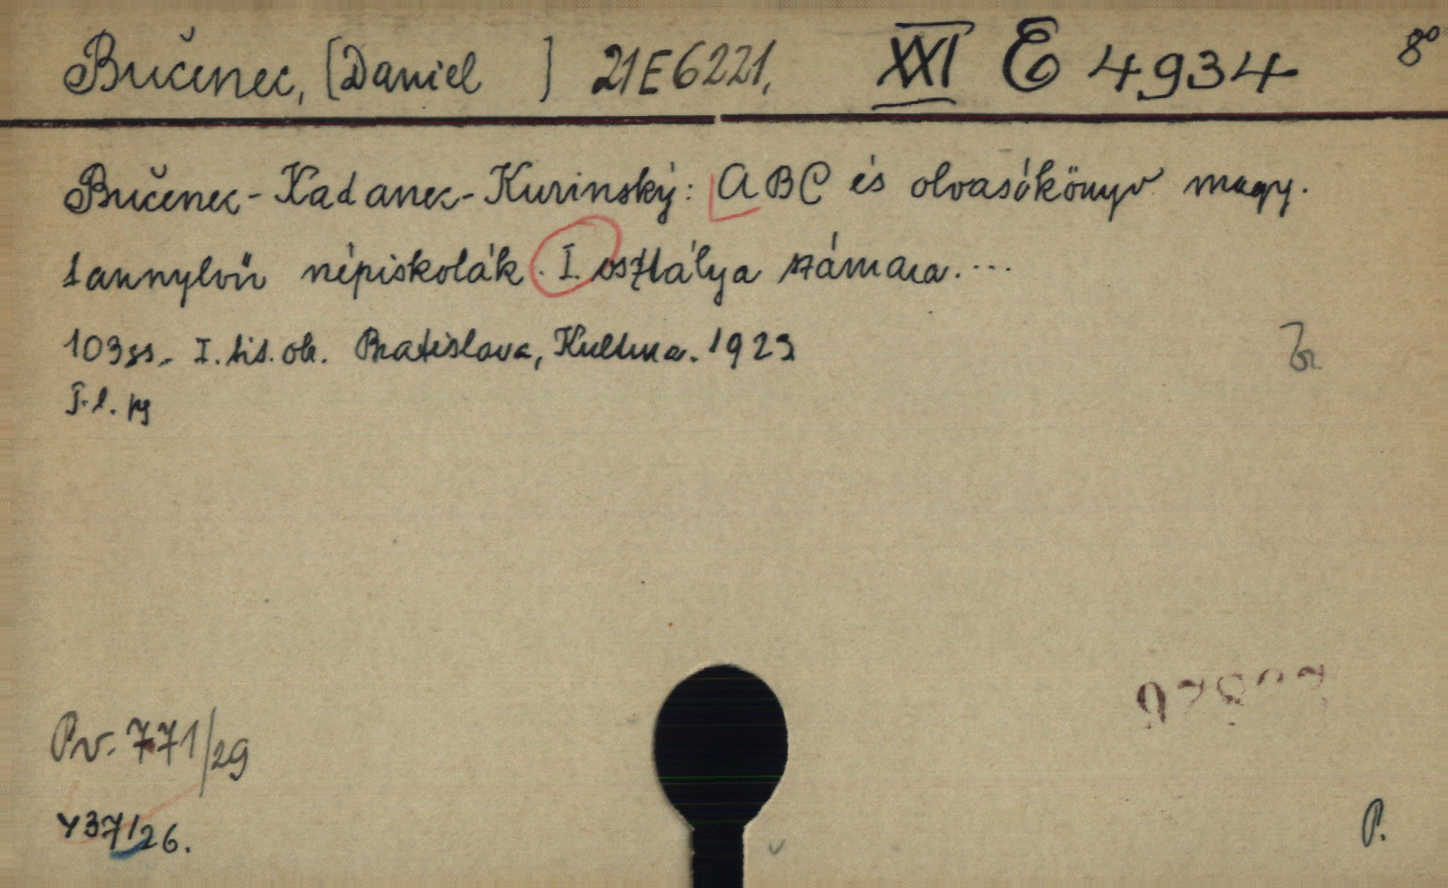 Bučenec, [Daniel ] 21E6221. XXI E 4934 8°
Bučenec-Kadanec-Kurinský: ABC és olvasókönyv magy.
tannyelvű népiskolák. I. osztálya számára....
103 ss. I. tis. ob. Bratislava, Kultura. 1923
Pv. 771/29
Y37/26.
P.